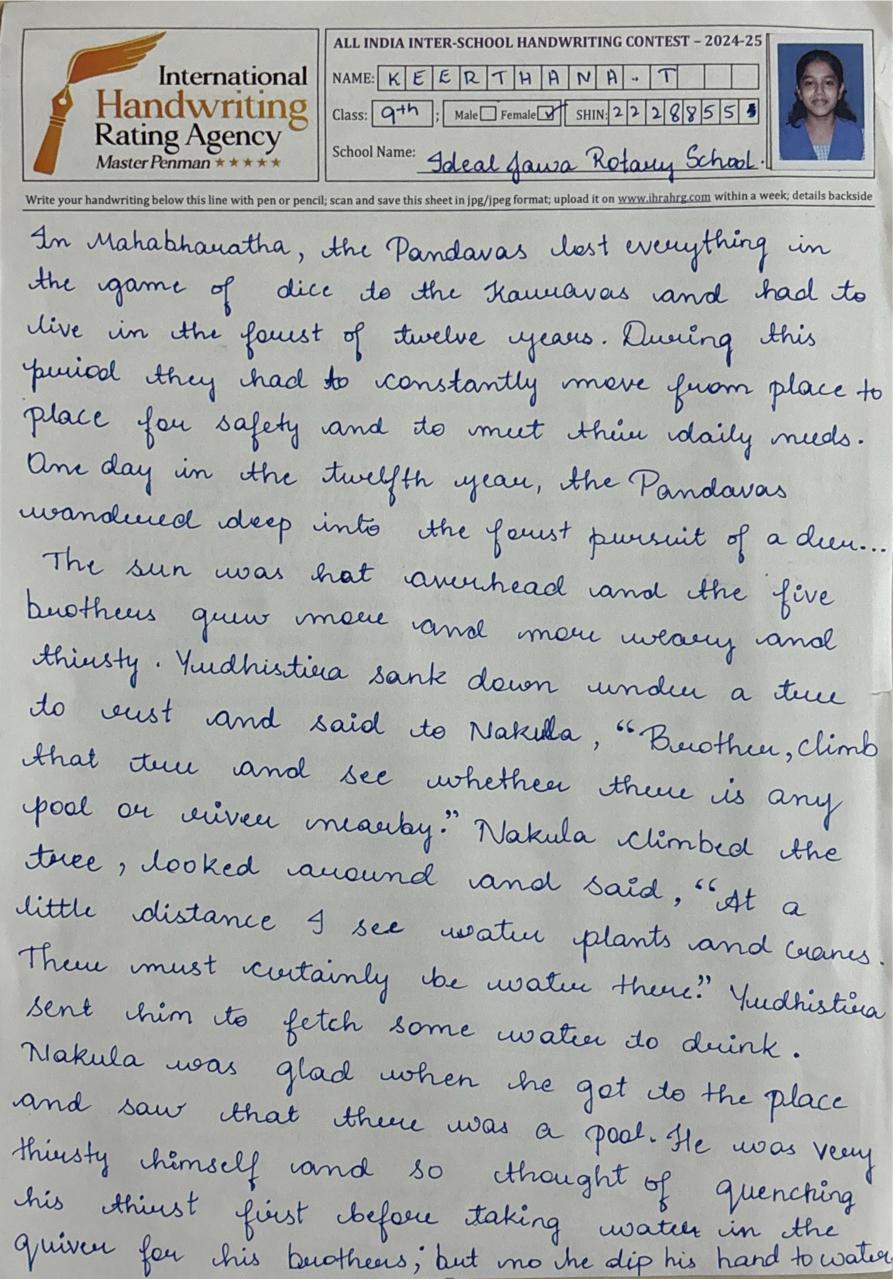 International
Handwriting
Rating Agency
Master Penman ★★★★★
ALL INDIA INTER-SCHOOL HANDWRITING CONTEST – 2024-25
NAME: KEERTHANA. T
Class: 9th ; Male Female SHIN: 22288555
School Name: Ideal Jawa Rotary School.
Write your handwriting below this line with pen or pencil; scan and save this sheet in jpg/jpeg format; upload it on www.ihrahrg.com within a week; details backside
In Mahabharatha, the Pandavas lost everything in
the game of dice to the Kauravas and had to
live in the forest of twelve years. During this
period they had to constantly move from place to
place for safety and to meet their daily needs.
One day in the twelfth year, the Pandavas
wandered deep into the forest pursuit of a deer...
The sun was hot overhead and the five
brothers grew more and more weary and
thirsty. Yudhistira sank down under a tree
to rest and said to Nakula, “Brother, climb
that tree and see whether there is any
pool or river nearby.” Nakula climbed the
tree, looked around and said, “At a
little distance I see water plants and cranes.
There must certainly be water there.” Yudhistira
sent him to fetch some water to drink.
Nakula was glad when he got to the place
and saw that there was a pool. He was very
thirsty himself and so thought of quenching
his thirst first before taking water in the
quiver for his brothers; but no he dip his hand to water